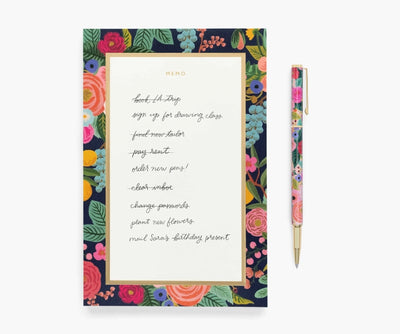 MEMO
book LA trip
sign up for drawing class
find new tailor
pay rent
order new pens!
clear inbox
change passwords
plant new flowers
mail Sara's birthday present